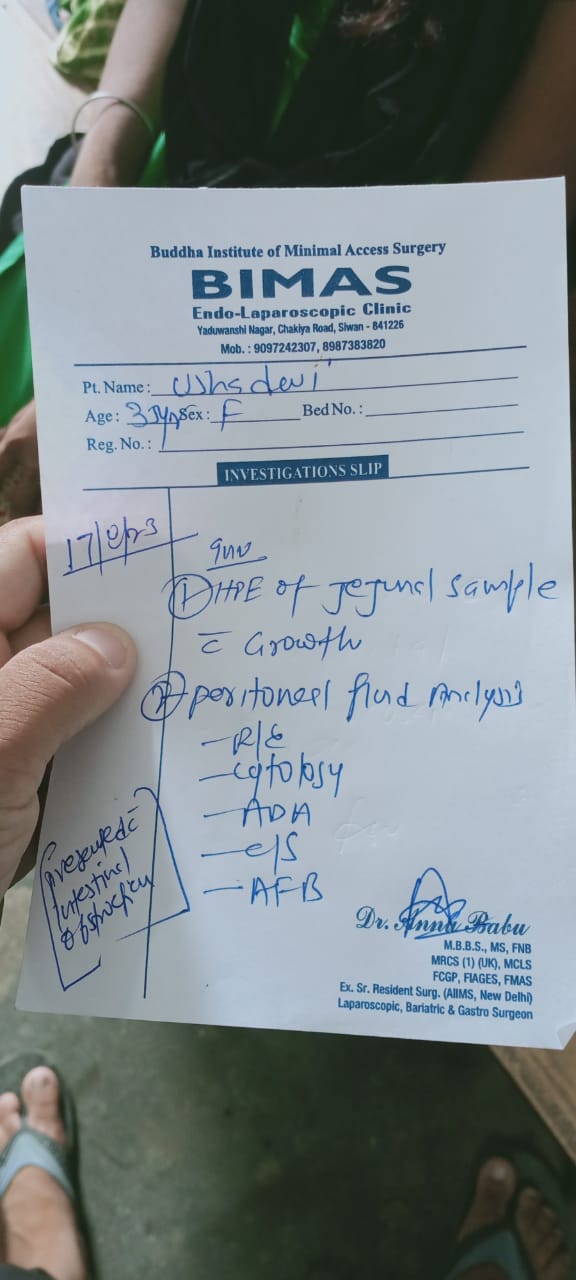 Buddha Institute of Minimal Access Surgery
BIMAS
Endo-Laparoscopic Clinic
Yaduwanshi Nagar, Chakiya Road, Siwan - 841226
Mob. : 9097242307, 8987383820
Pt. Name : Usha devi
Age : 35yrs Sex : F Bed No. :
Reg. No. :
INVESTIGATIONS SLIP
Inv
① HPE of Jejunal Sample
c̄ Growth
② Peritoneal fluid Analysis
- R/E
- Cytology
- ADA
- C/S
- AFB
Presented c̄
Intestinal
Obstruction
Dr. Annu Babu
M.B.B.S., MS, FNB
MRCS (1) (UK), MCLS
FCGP, FIAGES, FMAS
Ex. Sr. Resident Surg. (AIIMS, New Delhi)
Laparoscopic, Bariatric & Gastro Surgeon